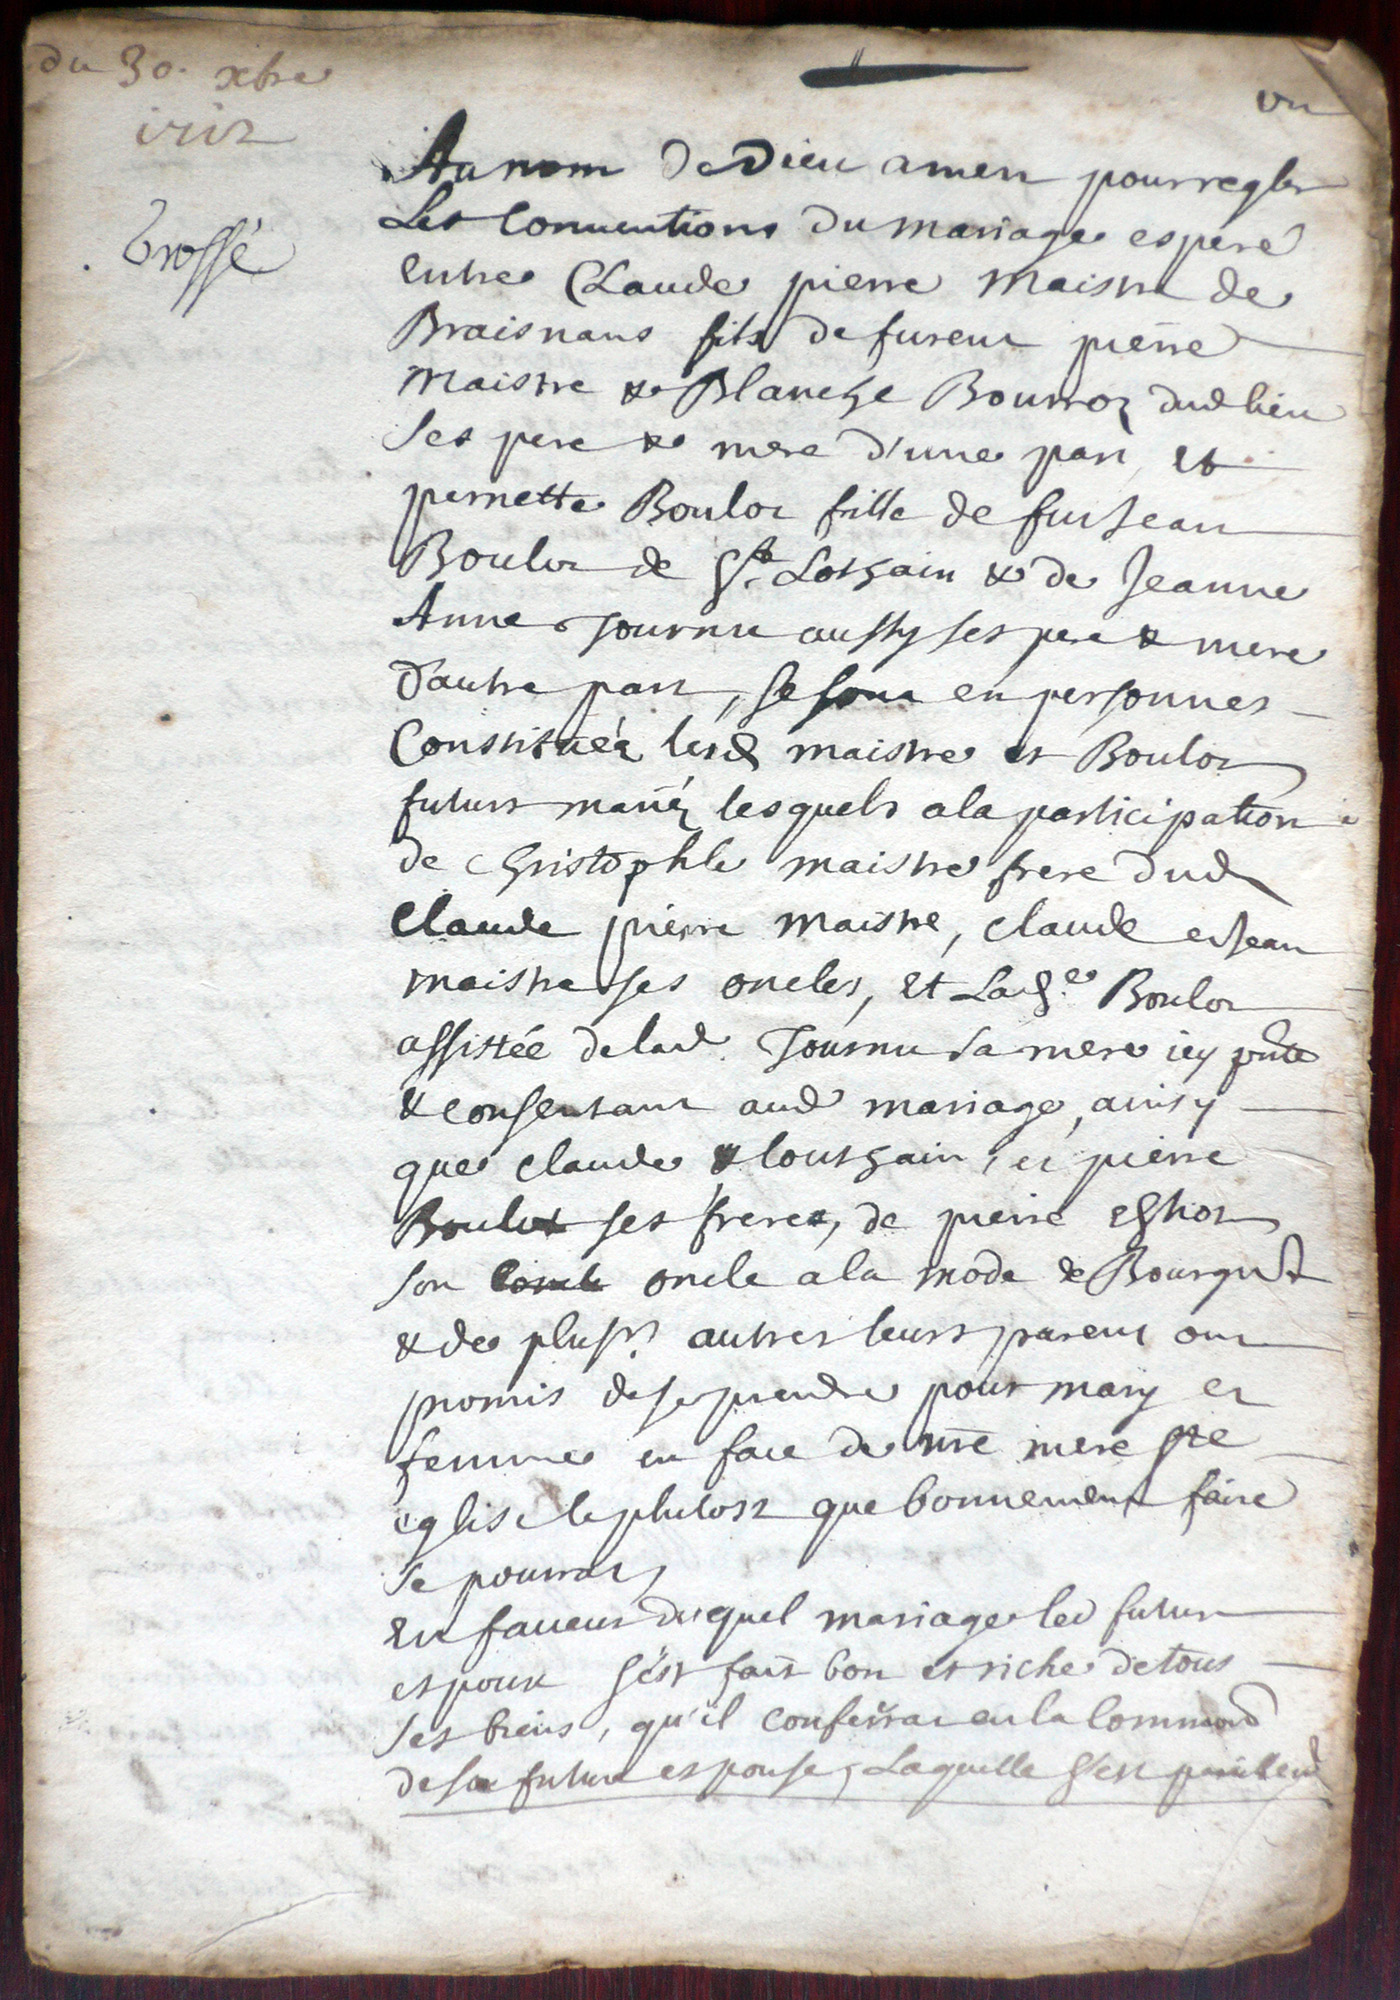 du 30. xbre
1712
Grossé
un
Au nom de Dieu amen pour regler
Les Conventions du mariage esperé
entre Claude pierre Maistre de
Braisnans fils de fureur pierre
Maistre & Blanche Bourroz dud lieu
ses pere & mere d'une part, et
pernette Boulor fille de fut Jean
Boulor de St. Lothain & de Jeanne
Anne Tournu aussy ses pere & mere
d'autre part, se sont en personnes
Constituéz lesd maistre et Boulor
futurs mariéz lesquels a la participation
de Christophle maistre frere dud
Claude pierre Maistre, claude et Jean
maistre ses oncles, et Lad.e Boulor
assistée de lad. Tournu sa mere icy pnte
& consentant aud mariage, ainsy
que claude & Louthain, et pierre
Boulor ses freres, de pierre
son oncle a la mode de Bourgne
& de plusrs autres leurs parent ont
promis de se prendre pour mary et
femme en face de nre mere ste
eglise le plutost que bonnement faire
se pourrat,
En faveur duquel mariage led futur
espoux s'est fait bon et riche de tous
ses biens, qu'il conferrat en la Commond
de sa future espouse, Laquelle s'est pareillemt